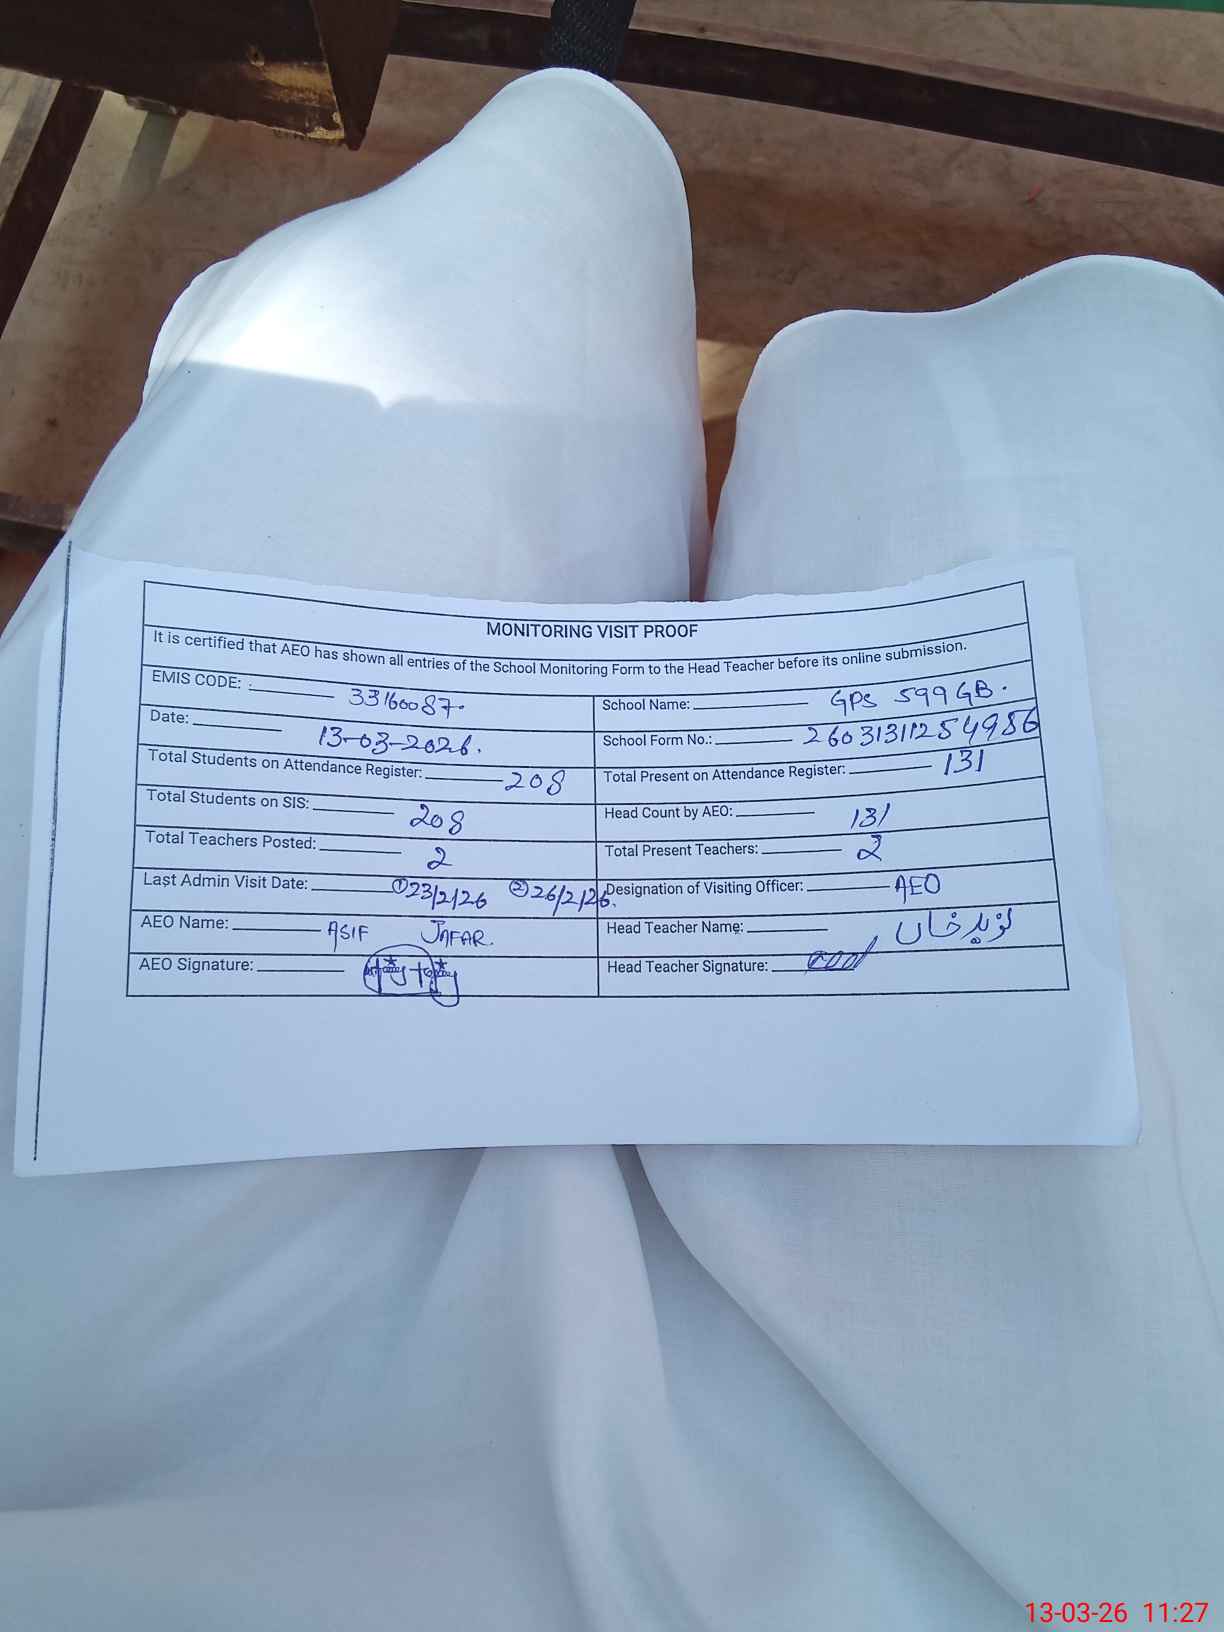 MONITORING VISIT PROOF
It is certified that AEO has shown all entries of the School Monitoring Form to the Head Teacher before its online submission.
EMIS CODE: 33160087.
School Name: GPS 599 GB.
Date: 13-03-2026.
School Form No.: 26031311254986
Total Students on Attendance Register: 208
Total Present on Attendance Register: 131
Total Students on SIS: 208
Head Count by AEO: 131
Total Teachers Posted: 2
Total Present Teachers: 2
Last Admin Visit Date: ① 23/2/26 ② 26/2/26.
Designation of Visiting Officer: AEO
AEO Name: ASIF JAFAR.
Head Teacher Name: نوید خاں
AEO Signature:
Head Teacher Signature:
13-03-26 11:27